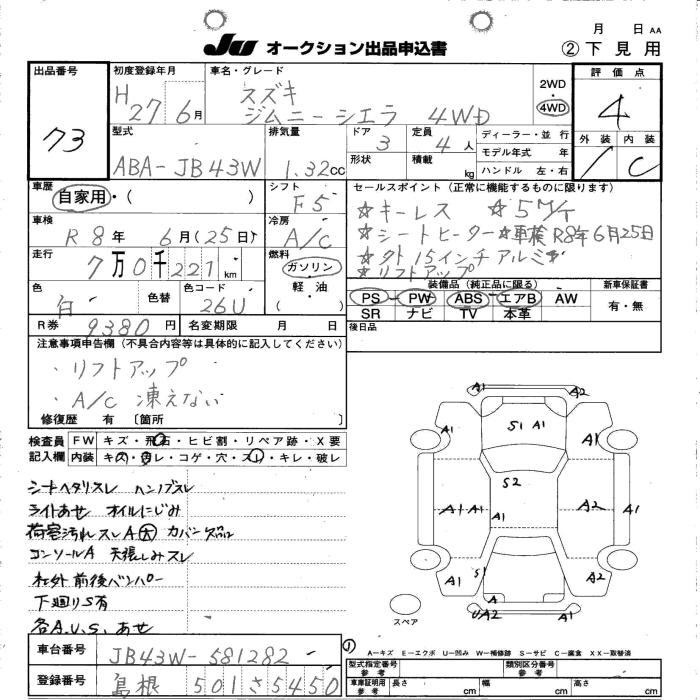 月 日 AA
JU オークション出品申込書 ② 下見用
出品番号 初度登録年月 車名・グレード 評価点
73 H 27年 6月 スズキ ジムニーシエラ 4WD 2WD 4WD 4
型式 排気量 ドア 定員 ディーラー・並行 外装 内装
ABA-JB43W 1.32cc 3 4人 モデル年式 年 1 C
形状 積載 kg ハンドル 左・右
車歴 シフト セールスポイント(正常に機能するものに限ります)
自家用・( ) F5 ☆キーレス ☆5M/T
車検 冷房 ☆シートヒーター ☆車検R8年6月25日
R8年 6月(25日) A/C ☆外15インチアルミ
走行 燃料 ☆リフトアップ
7万0千227km ガソリン
軽油
( )
色 色替 色コード 装備品(純正品に限る) 新車保証書
白 26U PS PW ABS エアB AW 有・無
SR ナビ TV 本革
R券 9380円 名変期限 月 日 後日品
注意事項申告欄(不具合内容等は具体的に記入してください)
・リフトアップ
・A/C 凍えない
修復歴 有 〔箇所 〕
検査員 FW キズ・飛石・ヒビ割・リペア跡・X要
記入欄 内装 キズ・汚レ・コゲ・穴・スレ・キレ・破レ
シートヘタリスレ ハンドルスレ
ライトあせ オイルにじみ
荷室汚れスレA大
コンソールA 天張しみスレ
社外前後バンパー
下廻りS有
各A.U.S.あせ
A1 A2
A1 S1 A1 A1
S2
A1 A1 A2 A1
A1 S1 A2
A
UA2 A1
スペア
車台番号 JB43W-581282
登録番号 島根 501さ5450
① A-キズ E-エクボ U-凹み W-補修跡 S-サビ C-腐食 XX-取替済
型式指定番号 参考 類別区分番号 参考
車庫証明用 参考 長さ cm 幅 cm 高さ cm